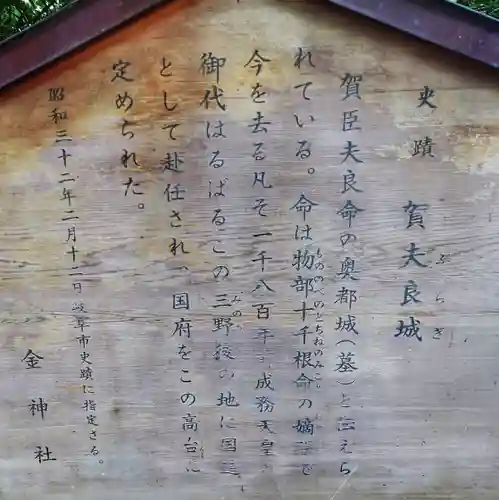 史蹟 賀夫良城
ぶらき
賀臣夫良命の奥都城(墓)と伝えら
れている。命は物部十千根命の嫡
もののべのとちねのみこ
今を去る凡そ一千八百年 成務天皇
御代はるばるこの三野後の地に国造
みの
として赴任され、国府をこの高台に
定められた。
昭和三十二年二月十二日 岐阜市史蹟に指定さる。
金神社